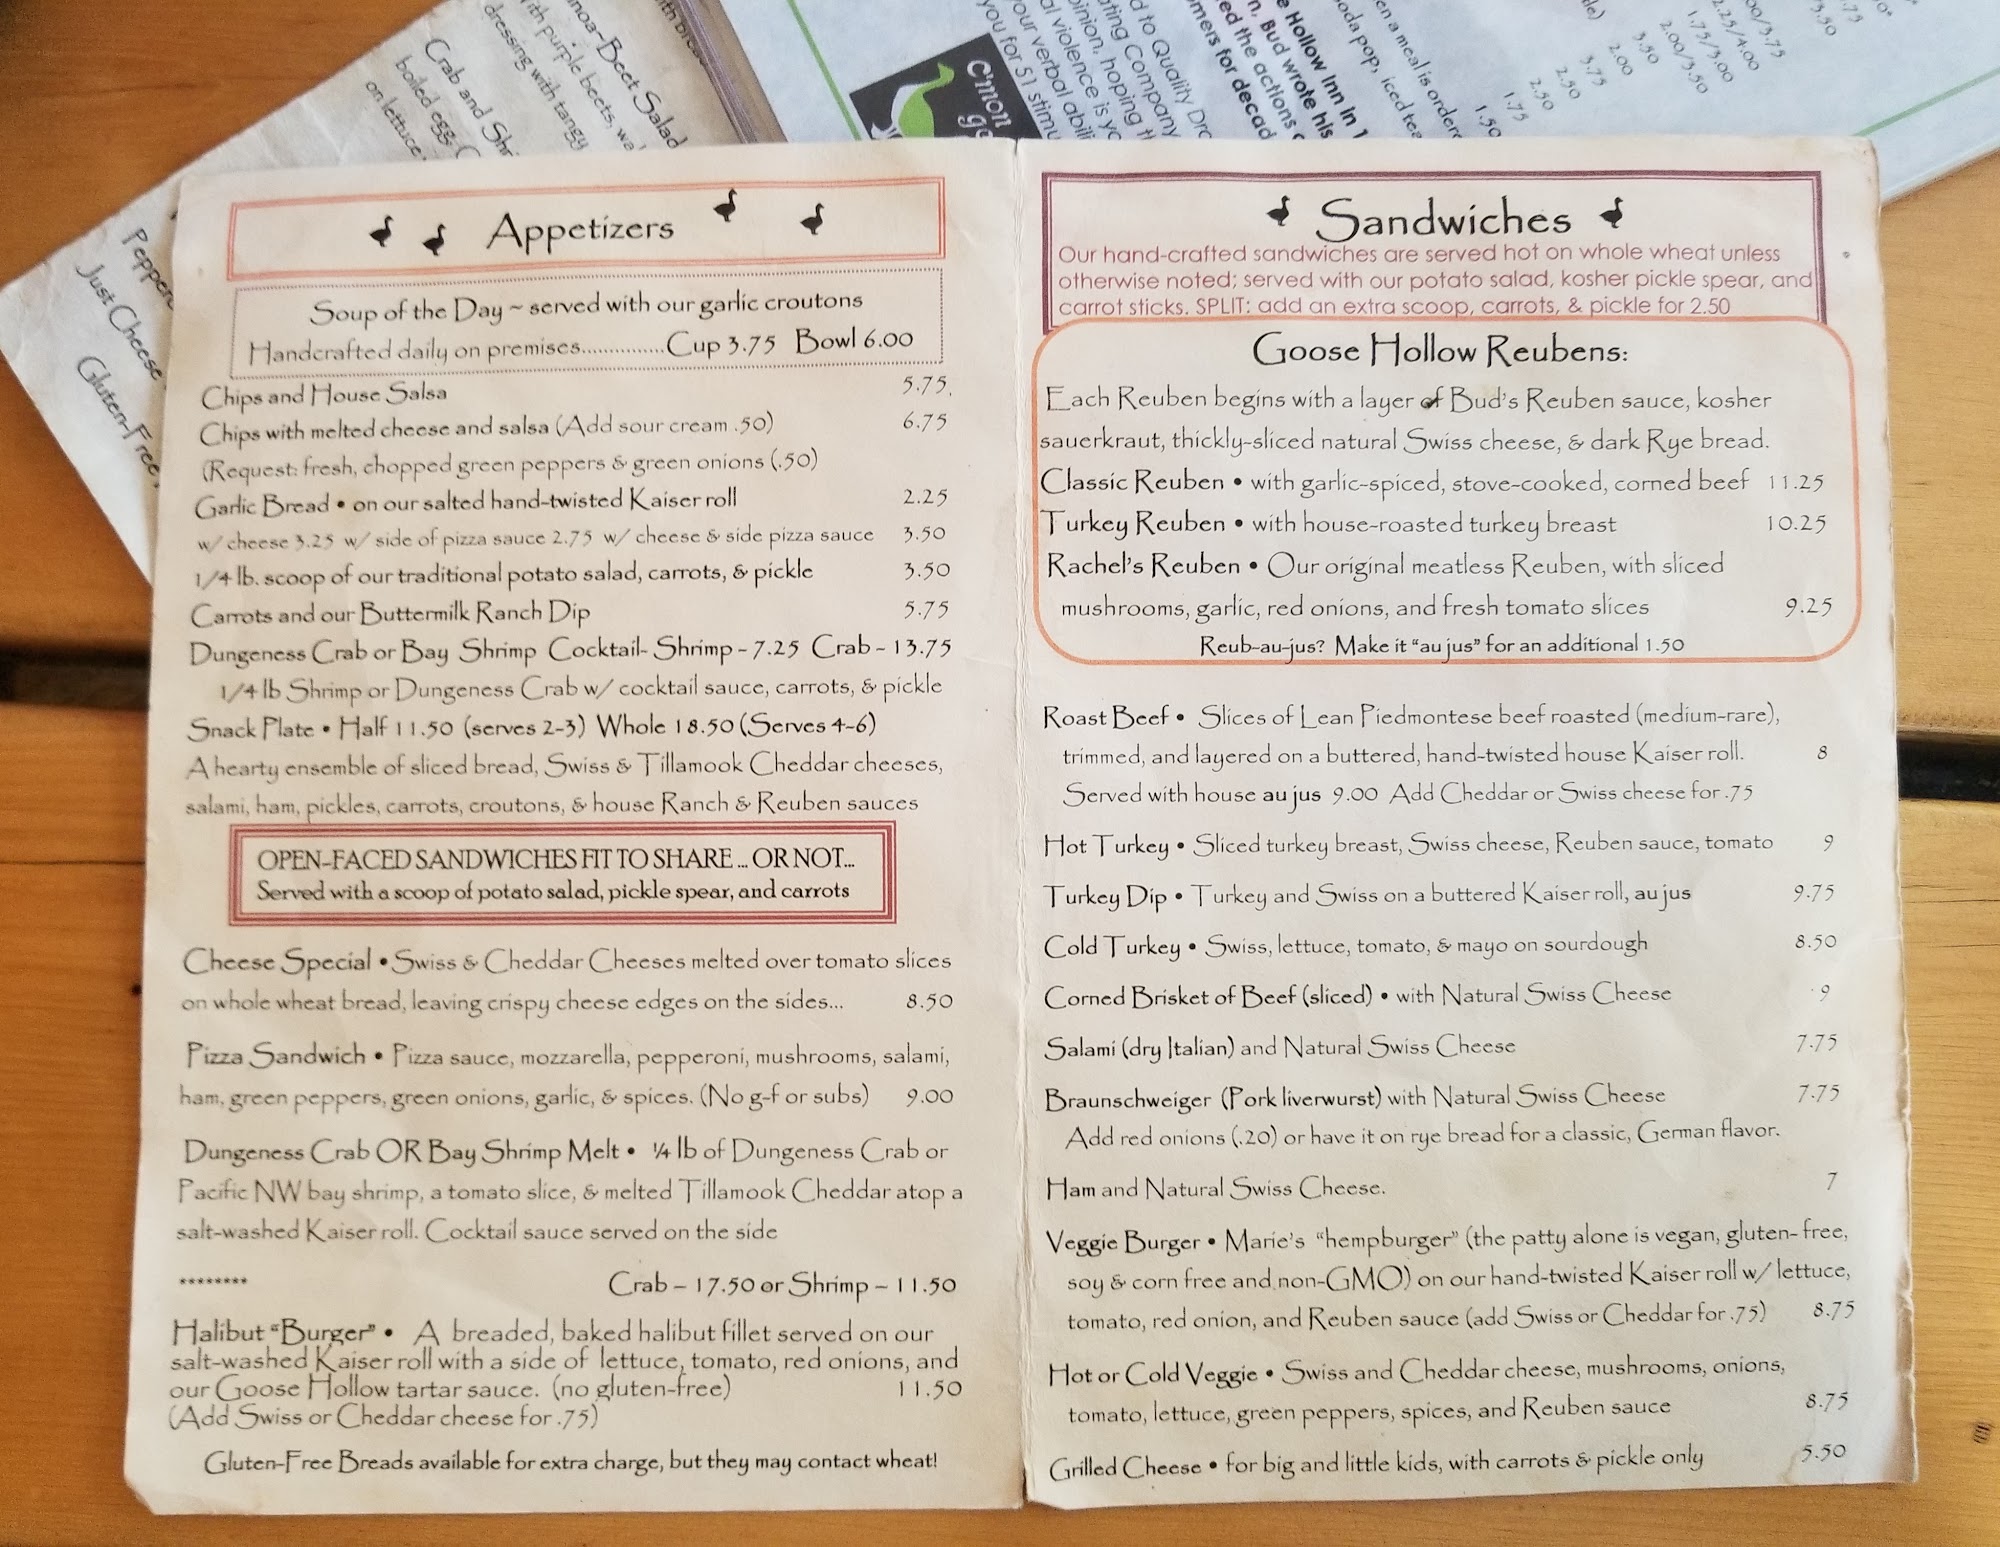 noa-Beet Salad
with purple beets, wa
dressing with tangy
Crab and Shri
boiled egg,
on lettuce
Just Cheese
Gluten-Free
C'mon
d to Quality Dra
ating Company
pinion, hoping th
al violence is yo
your verbal abili
you for $1 stimu
e Hollow Inn in 1
n, Bud wrote his
ed the actions o
mers for decad
en a meal is ordere
oda pop, iced tea
1.50
1.75
2.50
2.50
3.75
2.00
3.50
2.00/3.50
1.75/3.00
2.25/4.00
Appetizers
Soup of the Day ~ served with our garlic croutons
Handcrafted daily on premises...............Cup 3.75 Bowl 6.00
Chips and House Salsa 5.75
Chips with melted cheese and salsa (Add sour cream .50) 6.75
(Request: fresh, chopped green peppers & green onions (.50)
Garlic Bread • on our salted hand-twisted Kaiser roll 2.25
w/ cheese 3.25 w/ side of pizza sauce 2.75 w/ cheese & side pizza sauce 3.50
1/4 lb. scoop of our traditional potato salad, carrots, & pickle 3.50
Carrots and our Buttermilk Ranch Dip 5.75
Dungeness Crab or Bay Shrimp Cocktail- Shrimp - 7.25 Crab - 13.75
1/4 lb Shrimp or Dungeness Crab w/ cocktail sauce, carrots, & pickle
Snack Plate • Half 11.50 (serves 2-3) Whole 18.50 (Serves 4-6)
A hearty ensemble of sliced bread, Swiss & Tillamook Cheddar cheeses,
salami, ham, pickles, carrots, croutons, & house Ranch & Reuben sauces
OPEN-FACED SANDWICHES FIT TO SHARE ... OR NOT...
Served with a scoop of potato salad, pickle spear, and carrots
Cheese Special • Swiss & Cheddar Cheeses melted over tomato slices
on whole wheat bread, leaving crispy cheese edges on the sides... 8.50
Pizza Sandwich • Pizza sauce, mozzarella, pepperoni, mushrooms, salami,
ham, green peppers, green onions, garlic, & spices. (No g-f or subs) 9.00
Dungeness Crab OR Bay Shrimp Melt • ¼ lb of Dungeness Crab or
Pacific NW bay shrimp, a tomato slice, & melted Tillamook Cheddar atop a
salt-washed Kaiser roll. Cocktail sauce served on the side
******** Crab – 17.50 or Shrimp – 11.50
Halibut "Burger" • A breaded, baked halibut fillet served on our
salt-washed Kaiser roll with a side of lettuce, tomato, red onions, and
our Goose Hollow tartar sauce. (no gluten-free) 11.50
(Add Swiss or Cheddar cheese for .75)
Gluten-Free Breads available for extra charge, but they may contact wheat!
Sandwiches
Our hand-crafted sandwiches are served hot on whole wheat unless
otherwise noted; served with our potato salad, kosher pickle spear, and
carrot sticks. SPLIT: add an extra scoop, carrots, & pickle for 2.50
Goose Hollow Reubens:
Each Reuben begins with a layer of Bud's Reuben sauce, kosher
sauerkraut, thickly-sliced natural Swiss cheese, & dark Rye bread.
Classic Reuben • with garlic-spiced, stove-cooked, corned beef 11.25
Turkey Reuben • with house-roasted turkey breast 10.25
Rachel's Reuben • Our original meatless Reuben, with sliced
mushrooms, garlic, red onions, and fresh tomato slices 9.25
Reub-au-jus? Make it "au jus" for an additional 1.50
Roast Beef • Slices of Lean Piedmontese beef roasted (medium-rare),
trimmed, and layered on a buttered, hand-twisted house Kaiser roll. 8
Served with house au jus 9.00 Add Cheddar or Swiss cheese for .75
Hot Turkey • Sliced turkey breast, Swiss cheese, Reuben sauce, tomato 9
Turkey Dip • Turkey and Swiss on a buttered Kaiser roll, au jus 9.75
Cold Turkey • Swiss, lettuce, tomato, & mayo on sourdough 8.50
Corned Brisket of Beef (sliced) • with Natural Swiss Cheese 9
Salami (dry Italian) and Natural Swiss Cheese 7.75
Braunschweiger (Pork liverwurst) with Natural Swiss Cheese 7.75
Add red onions (.20) or have it on rye bread for a classic, German flavor.
Ham and Natural Swiss Cheese. 7
Veggie Burger • Marie's "hempburger" (the patty alone is vegan, gluten- free,
soy & corn free and non-GMO) on our hand-twisted Kaiser roll w/ lettuce,
tomato, red onion, and Reuben sauce (add Swiss or Cheddar for .75) 8.75
Hot or Cold Veggie • Swiss and Cheddar cheese, mushrooms, onions,
tomato, lettuce, green peppers, spices, and Reuben sauce 8.75
Grilled Cheese • for big and little kids, with carrots & pickle only 5.50